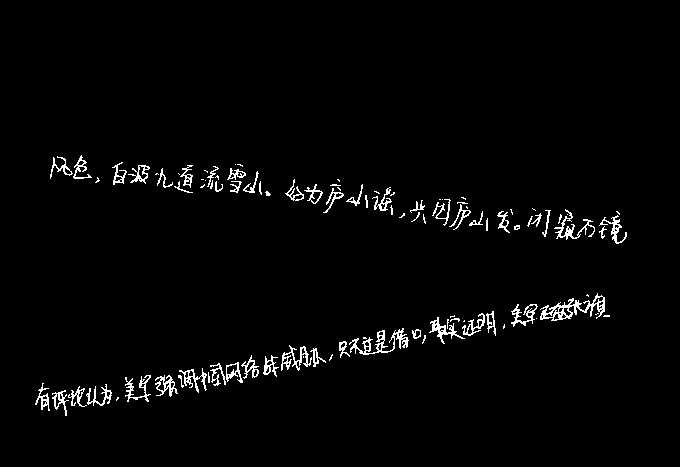 风色，白波九道流雪山。好为庐山谣，兴因庐山发。闲窥石镜
有评论认为，美军强调中国网络战威胁，只不过是借口，事实证明，美军正在